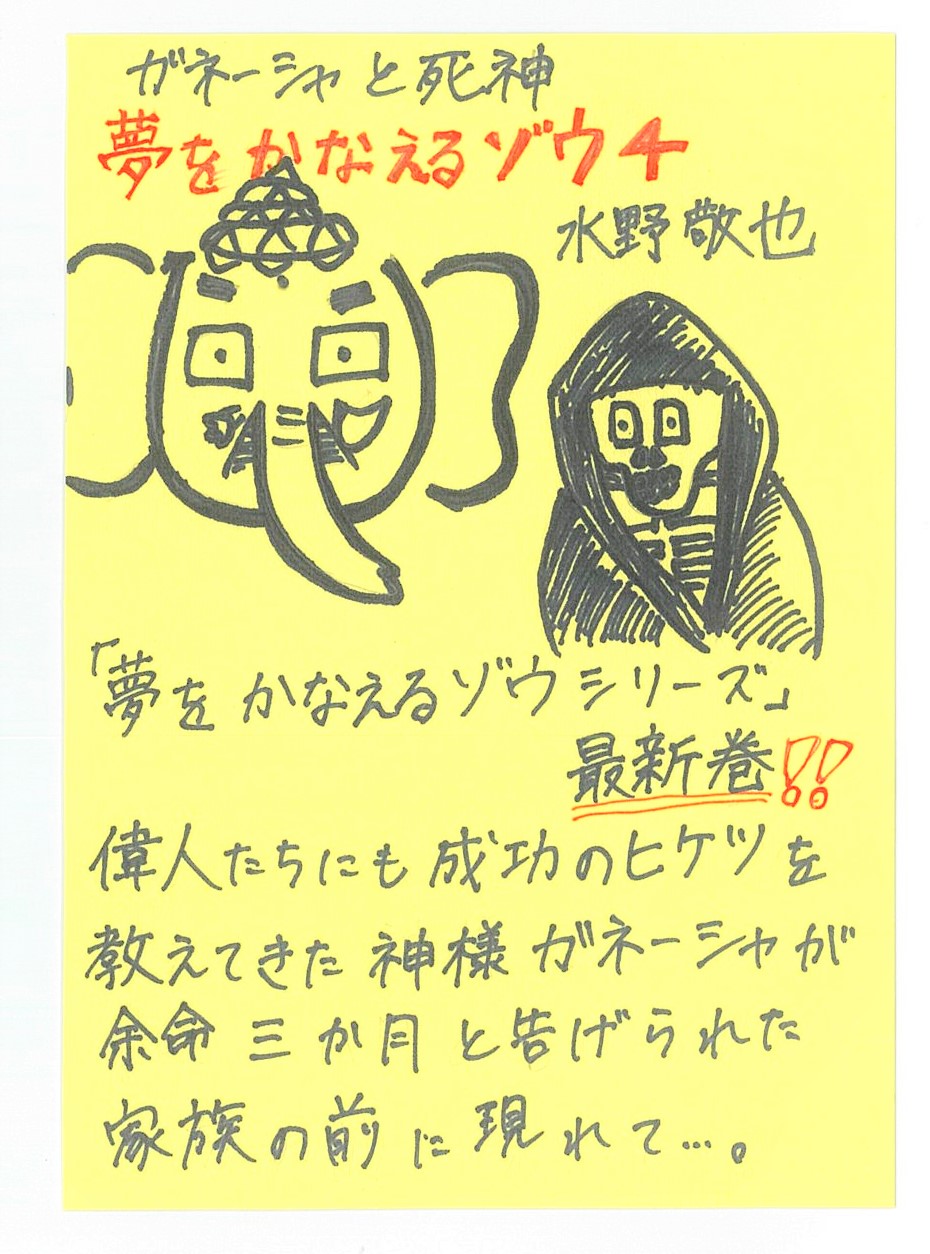 ガネーシャと死神
夢をかなえるゾウ4
水野敬也
「夢をかなえるゾウシリーズ」
最新巻!!
偉人たちにも成功のヒケツを
教えてきた神様ガネーシャが
余命三か月と告げられた
家族の前に現れて…。